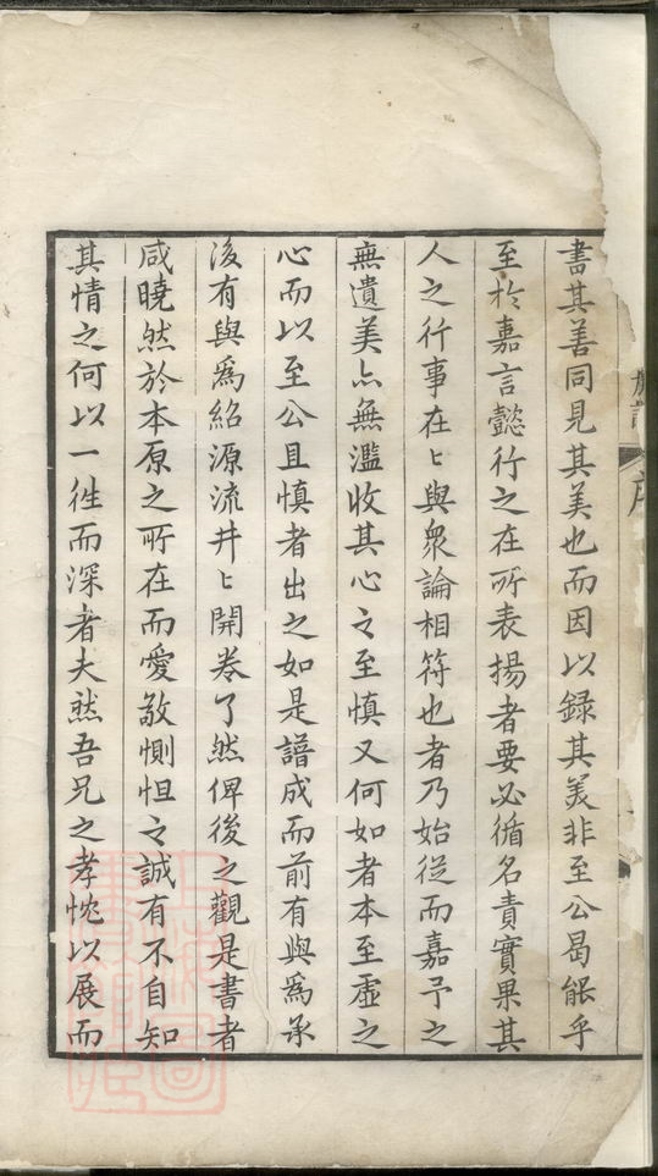 書其善同見其美也而因以録其美非至公曷能乎
至於嘉言懿行之在所表揚者要必循名責實果其
人之行事在〻與衆論相符也者乃始從而嘉予之
無遺美亦無濫收其心之至慎又何如者本至虛之
心而以至公且慎者出之如是譜成而前有與為承
後有與為紹源流井〻開卷了然俾後之觀是書者
咸曉然於本原之所在而愛敬惻怛之誠有不自知
其情之何以一往而深者夫然吾兄之孝忱以展而
序
上海圖書館藏